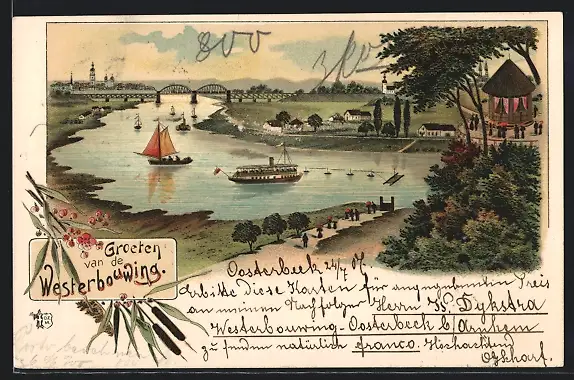 800
Groeten
van de
Westerbouwing.
Oosterbeek 24/7 07
Erbitte Diese Karten für angegebenten Preis
an meinen Nachfolger Herrn W. Dykstra
Westerbouwing - Oosterbeck b/Arnhem
zu senden natürlich franco. Hochachtend